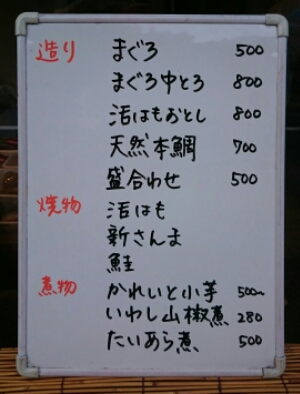 造り まぐろ 500
まぐろ中とろ 800
活はもおとし 800
天然本鯛 700
盛合わせ 500
焼物 活はも
新さんま
鮭
煮物 かれいと小芋 500~
いわし山椒煮 280
たいあら煮 500